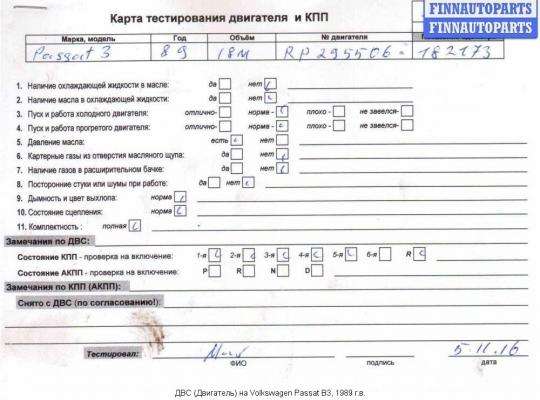 FINNAUTOPARTS
FINNAUTOPARTS
FINNAUTOPARTS
Карта тестирования двигателя и КПП
Марка, модель Год Объём № двигателя
Passat 3 89 18М RP 295506 - 182173
1. Наличие охлаждающей жидкости в масле: да нет
2. Наличие масла в охлаждающей жидкости: да нет
3. Пуск и работа холодного двигателя: отлично- норма - плохо - не завелся-
4. Пуск и работа прогретого двигателя: отлично- норма - плохо - не завелся-
5. Давление масла: есть нет
6. Картерные газы из отверстия масляного щупа: да нет
7. Наличие газов в расширительном бачке: да нет
8. Посторонние стуки или шумы при работе: да нет
9. Дымность и цвет выхлопа: норма
10. Состояние сцепления: норма
11. Комплектность : полная
Замечания по ДВС:
Состояние КПП - проверка на включение: 1-я 2-я 3-я 4-я 5-я 6-я R
Состояние АКПП - проверка на включение: P R N D
Замечания по КПП (АКПП):
Снято с ДВС (по согласованию!):
Тестировал: 5-11.16
ФИО подпись дата
ДВС (Двигатель) на Volkswagen Passat B3, 1989 г.в.